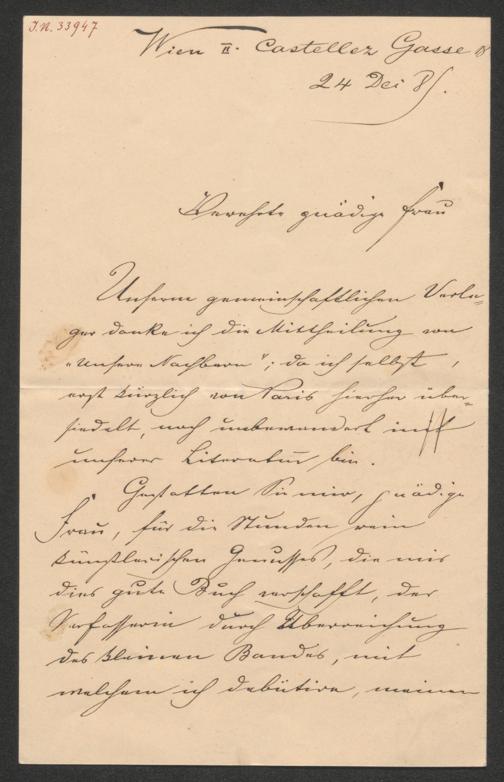 J.N. 33947
Wien II. Castellez Gasse 8
24 Dei 85.
Verehrte gnädige Frau
Unserm gemeinschaftlichen Verle-
ger danke ich die Mittheilung von
„Unsere Nachbarn"; da ich selbst,
erst kürzlich von Paris hierher über-
siedelt, noch unbewandert in
unserer Literatur bin.
Gestatten Sie mir, gnädige
Frau, für die Stunden rein
künstlerischen Genusses, die mir
dies gute Buch verschafft, der
Verfasserin durch Überreichung
des kleinen Bandes, mit
welchem ich debütire, meinen